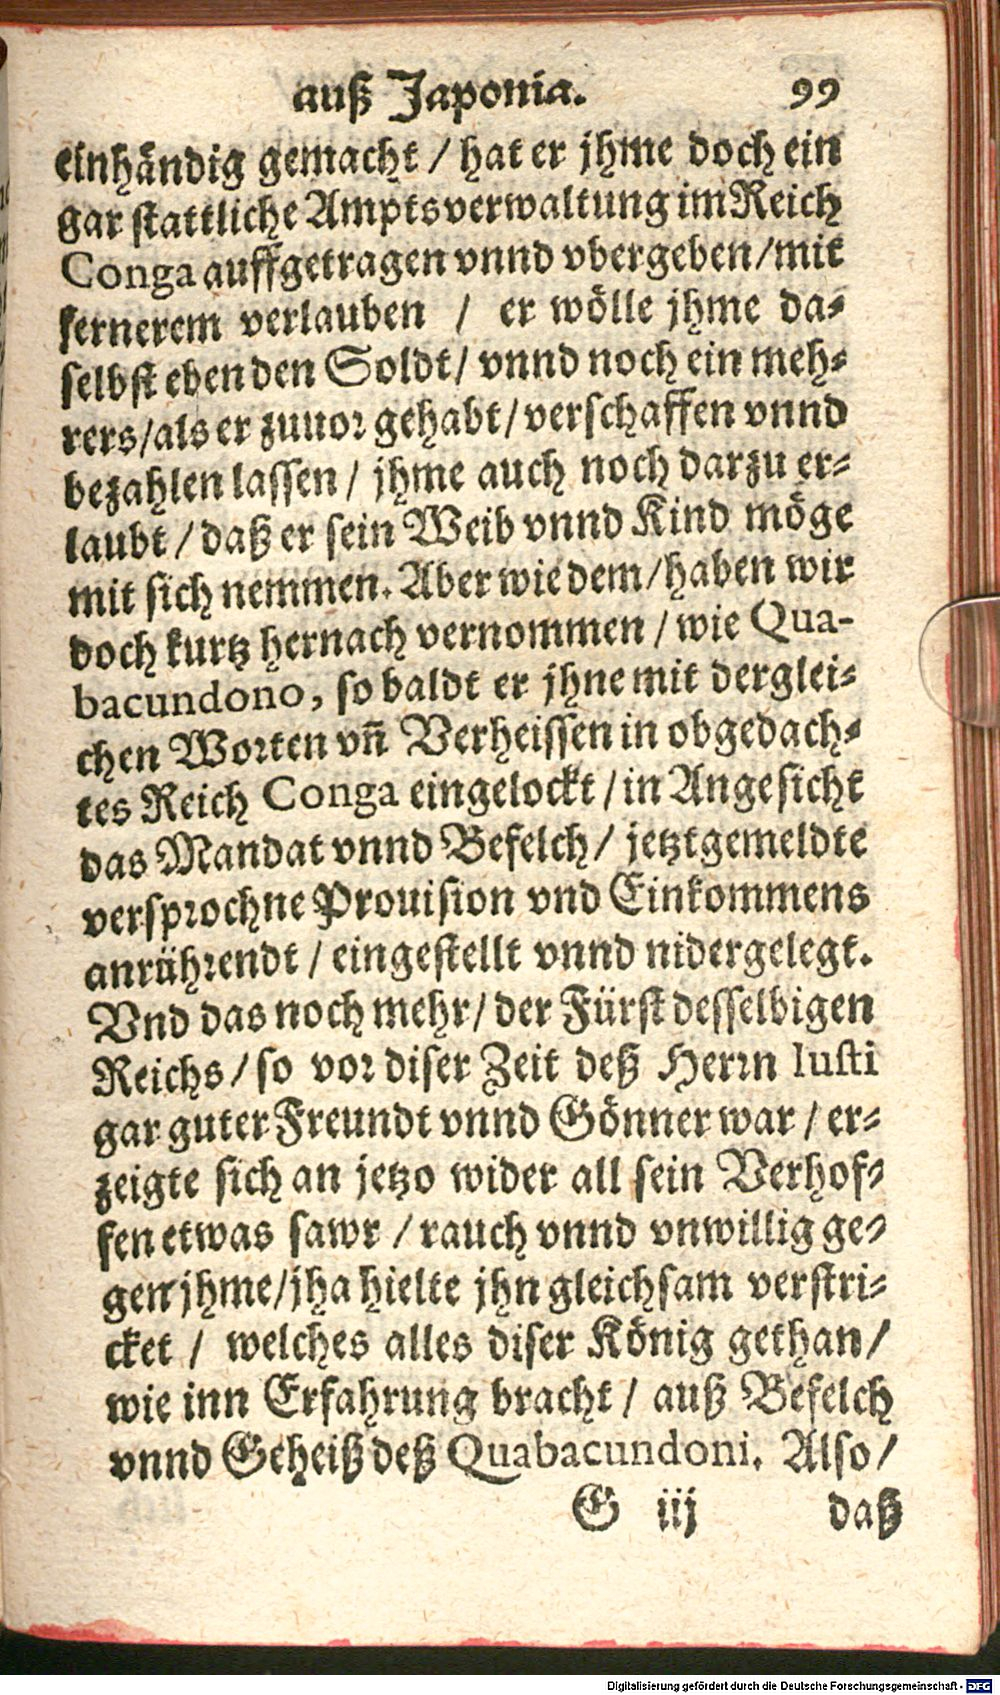 auß Japonia. 99
einhändig gemacht / hat er jhme doch ein
gar stattliche Amptsverwaltung im Reich
Conga auffgetragen vnnd vbergeben / mit
fernerem verlauben / er wölle jhme da-
selbst eben den Soldt / vnnd noch ein meh-
rers / als er zuuor gehabt / verschaffen vnnd
bezahlen lassen / jhme auch noch darzu er-
laubt / daß er sein Weib vnnd Kind möge
mit sich nemmen. Aber wie dem / haben wir
doch kurtz hernach vernommen / wie Qua-
bacundono, so baldt er jhne mit derglei-
chen Worten vñ Verheissen in obgedach-
tes Reich Conga eingelockt / in Angesicht
das Mandat vnnd Befelch / jetztgemeldte
versprochne Prouision vnd Einkommens
anrührendt / eingestellt vnnd nidergelegt.
Vnd das noch mehr / der Fürst desselbigen
Reichs / so vor diser Zeit deß Herrn Iusti
gar guter Freundt vnnd Gönner war / er-
zeigte sich an jetzo wider all sein Verhof-
fen etwas sawr / rauch vnnd vnwillig ge-
gen jhme / jha hielte jhn gleichsam verstri-
cket / welches alles diser König gethan /
wie inn Erfahrung bracht / auß Befelch
vnnd Geheiß deß Quabacundoni. Also /
G iij daß
Digitalisierung gefördert durch die Deutsche Forschungsgemeinschaft - DFG